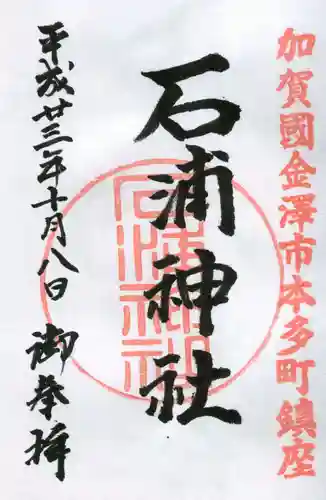 加賀國金澤市本多町鎮座
石浦神社
石浦神社
平成廿三年十月八日 御参拝